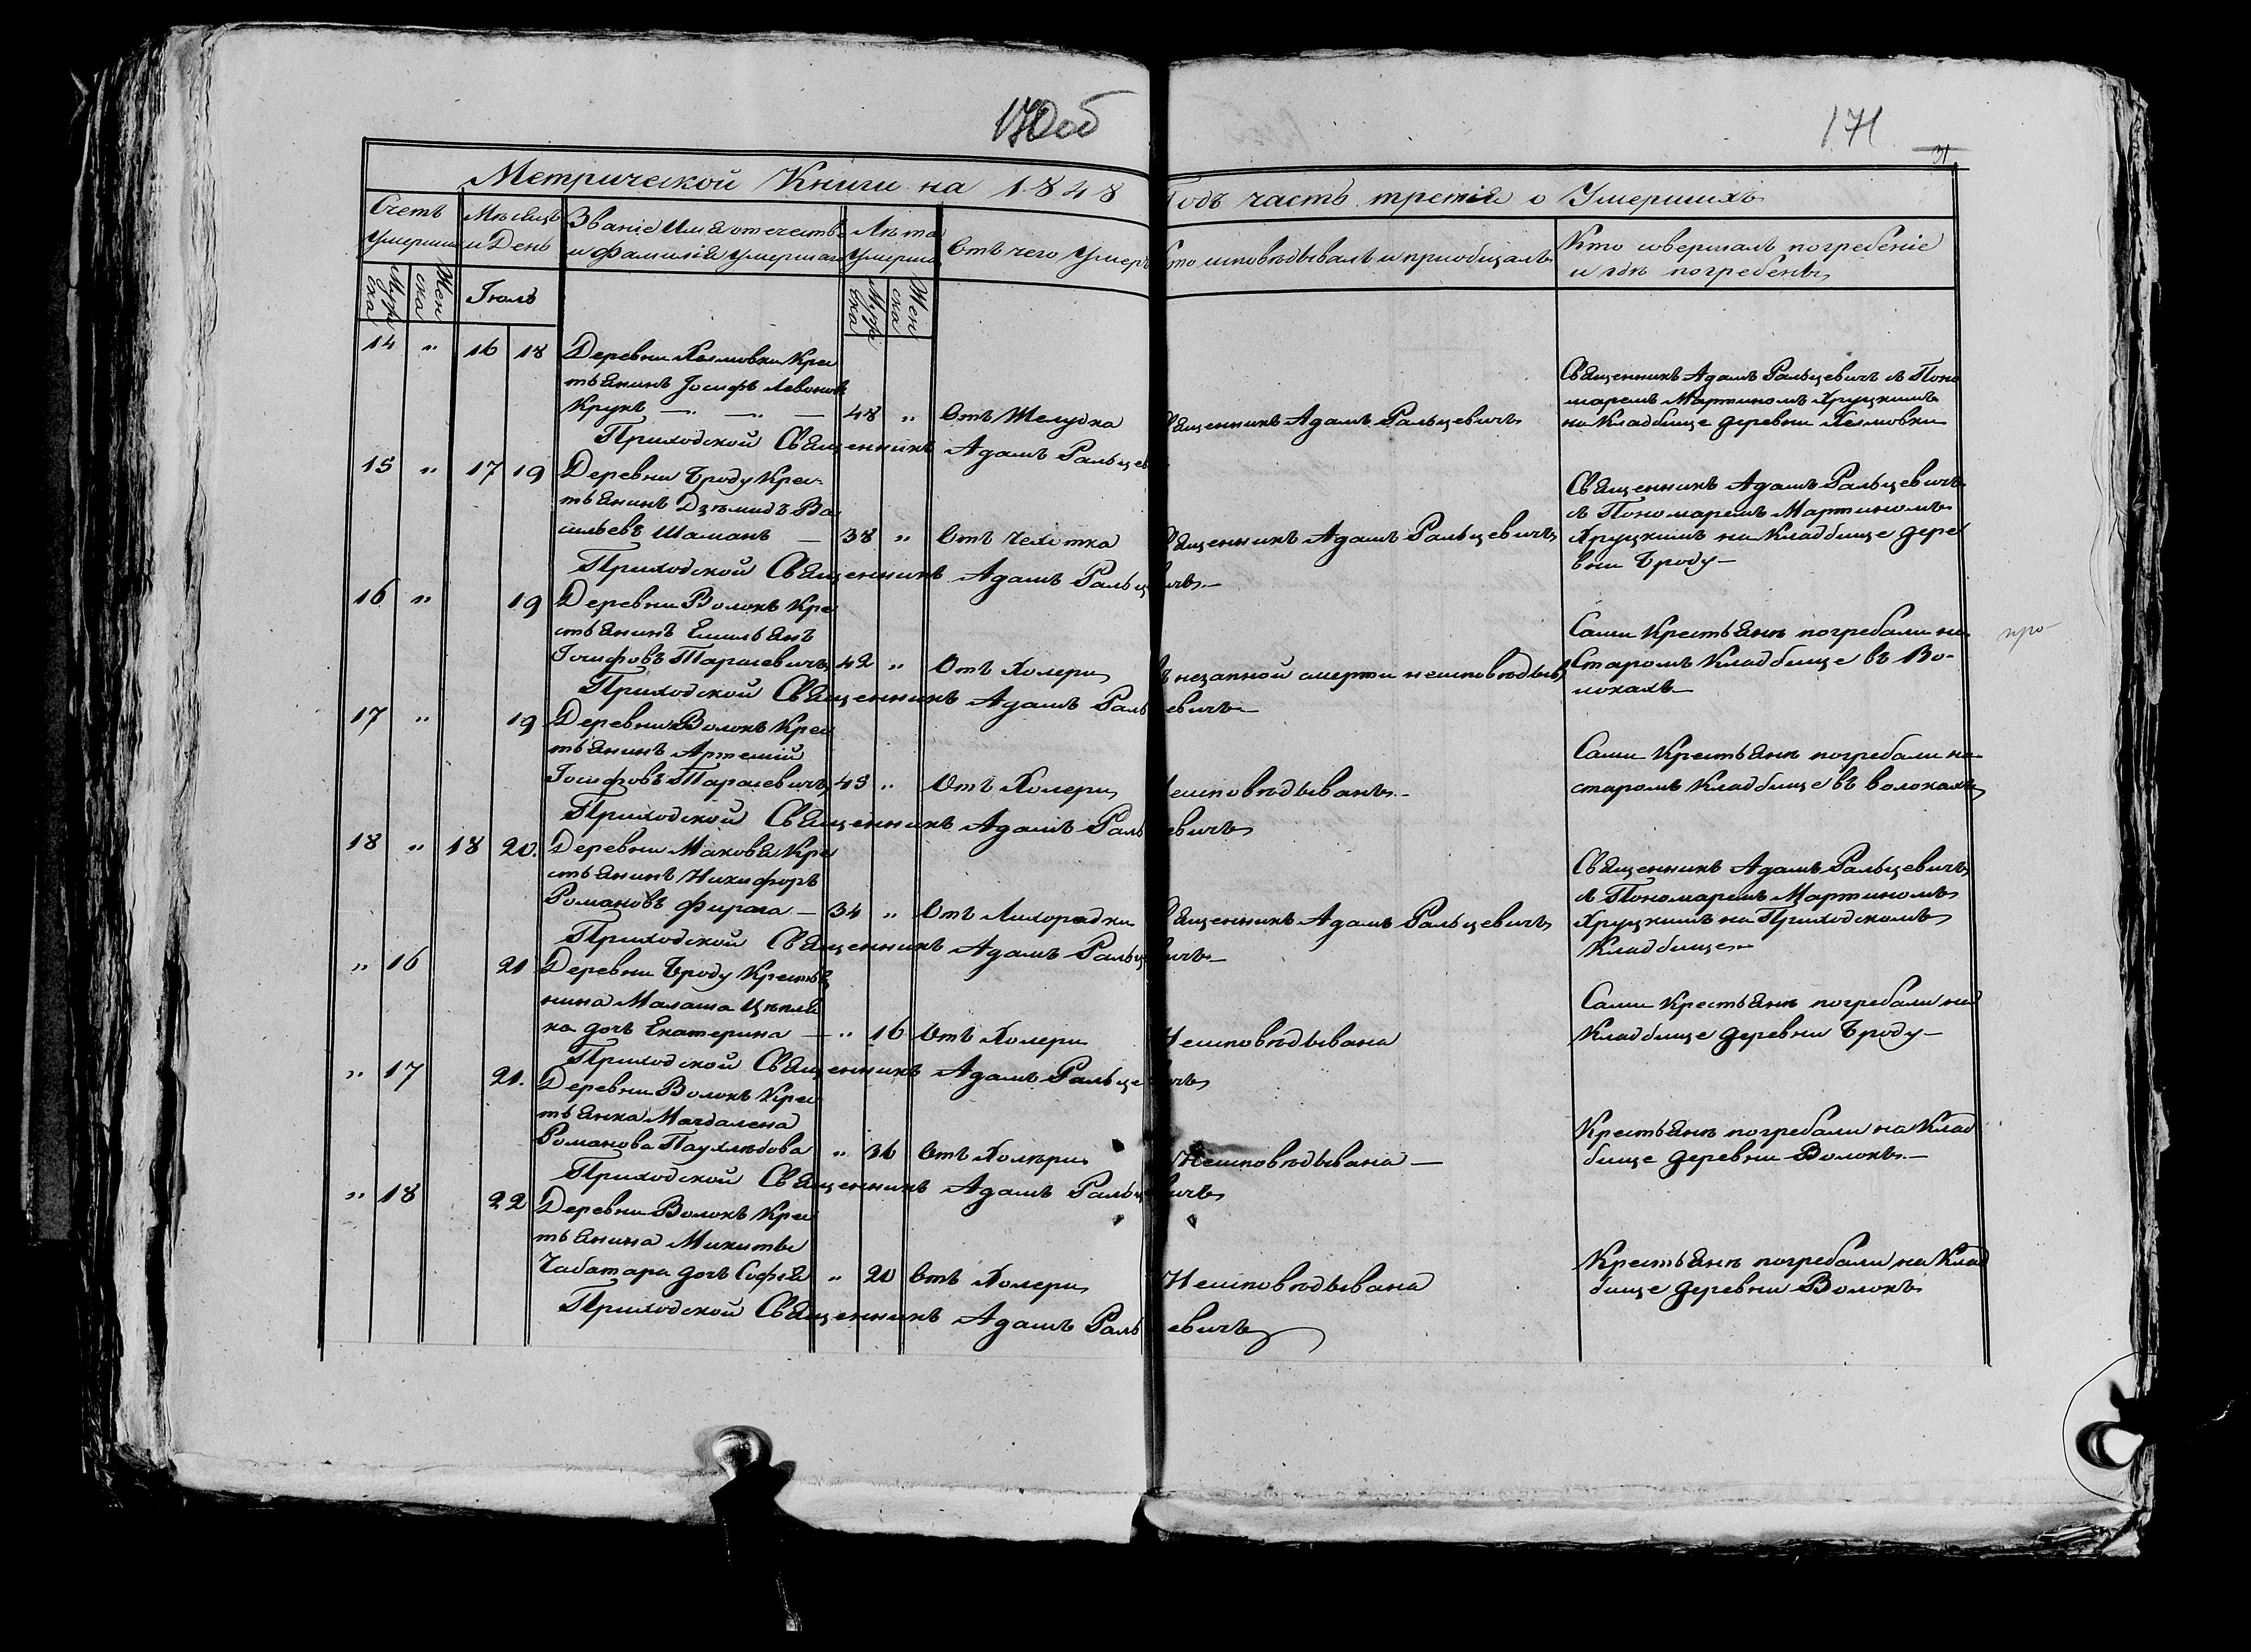 170об
171
31
Метрической Книги на 1848 Годъ часть третія о Умершихъ
Счетъ Умерши
Мѣсяцъ и День
Званіе Имя отечеств и Фамилія Умершаго
Лѣта Умерши
Отъ чего Умеръ
Кто исповѣдывалъ и пріобщалъ
Кто совершалъ погребеніе и гдѣ погребенъ
Муж ска
Жен ска
Іюль
Муж ска
Жен ска
14 „ 16 18 Деревни Крес
тьянинъ Іосифъ Левоновъ
Крукъ — „ — „ — 48 „ Отъ Желудка
Священникъ Адамъ Ральцевичъ
Священникъ Адамъ Ральцевичъ съ Поно
маремъ Мартиномъ Хруцкимъ
на Кладбище деревни
Приходской Священникъ Адамъ Ральцев
15 „ 17 19 Деревни Броду Крес
тьянинъ Дземидъ Ва
сильевъ Шаманъ — 38 „ Отъ Чехотка
Священникъ Адамъ Ральцевичъ
Священникъ Адамъ Ральцевичъ
съ Пономаремъ Мартиномъ
Хруцкимъ на Кладбище дере
вни Броду —
Приходской Священникъ Адамъ Ральцевичъ —
16 „ 19 Деревни Волокъ Кре
стьянинъ Емильянъ
Іосифовъ Тарасевичъ 42 „ Отъ Холери
Въ незапной смерти неисповѣдыв
Сами Крестьяне погребали на
Старомъ Кладбище въ Во-
локахъ —
про-
Приходской Священникъ Адамъ Ральцевичъ —
17 „ 19 Деревни Волокъ Крес
тьянинъ Артемій
Іосифовъ Тарасевичъ 43 „ Отъ Холери
Неисповѣдыванъ —
Сами Крестьяне погребали на
старомъ Кладбище въ волокахъ
Приходской Священникъ Адамъ Ральцевичъ
18 „ 18 20. Деревни Маковья Кре
стьянинъ Никифоръ
Романовъ Фирага — 34 „ Отъ Лихорадки
Священникъ Адамъ Ральцевичъ
Священникъ Адамъ Ральцевичъ
съ Пономаремъ Мартиномъ
Хруцкимъ на Приходскомъ
Кладбище —
Приходской Священникъ Адамъ Ральцевичъ —
„ 16 21 Деревни Броду Крестья
нина Малаша
ка дочь Екатерина — „ 16 Отъ Холери
Неисповѣдывана
Сами Крестьяне погребали на
Кладбище деревни Броду —
Приходской Священникъ Адамъ Ральцевичъ
„ 17 21. Деревни Волокъ Крес
тьянка Магдалена
Романова Паухлѣбова „ 36 Отъ Холѣри
Неисповѣдывана —
Крестьяне погребали на Клад
бище деревни Волокъ —
Приходской Священникъ Адамъ Ральцевичъ
„ 18 22 Деревни Волокъ Крес
тьянина Микиты
Чабатара дочь Софья „ 20 Отъ Холери
Неисповѣдывана
Крестьяне погребали на Клад
бище деревни Волокъ
Приходской Священникъ Адамъ Ральцевичъ